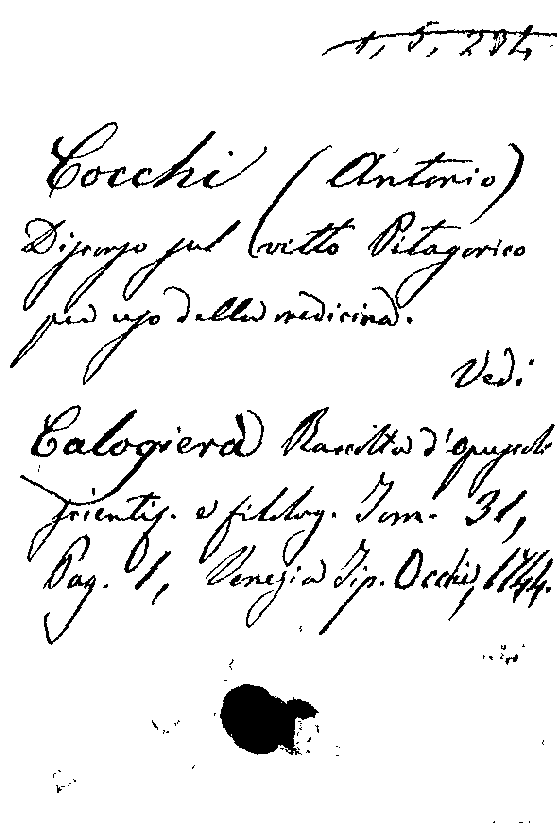 1, 5, 284
Cocchi (Antonio)
Discorso sul vitto Pitagorico
per uso della medicina.
Vedi
Calogierà Raccolta d'opuscoli
scientif. e filolog. Tom. 31,
Pag. 1, Venezia Tip. Occhi, 1744.